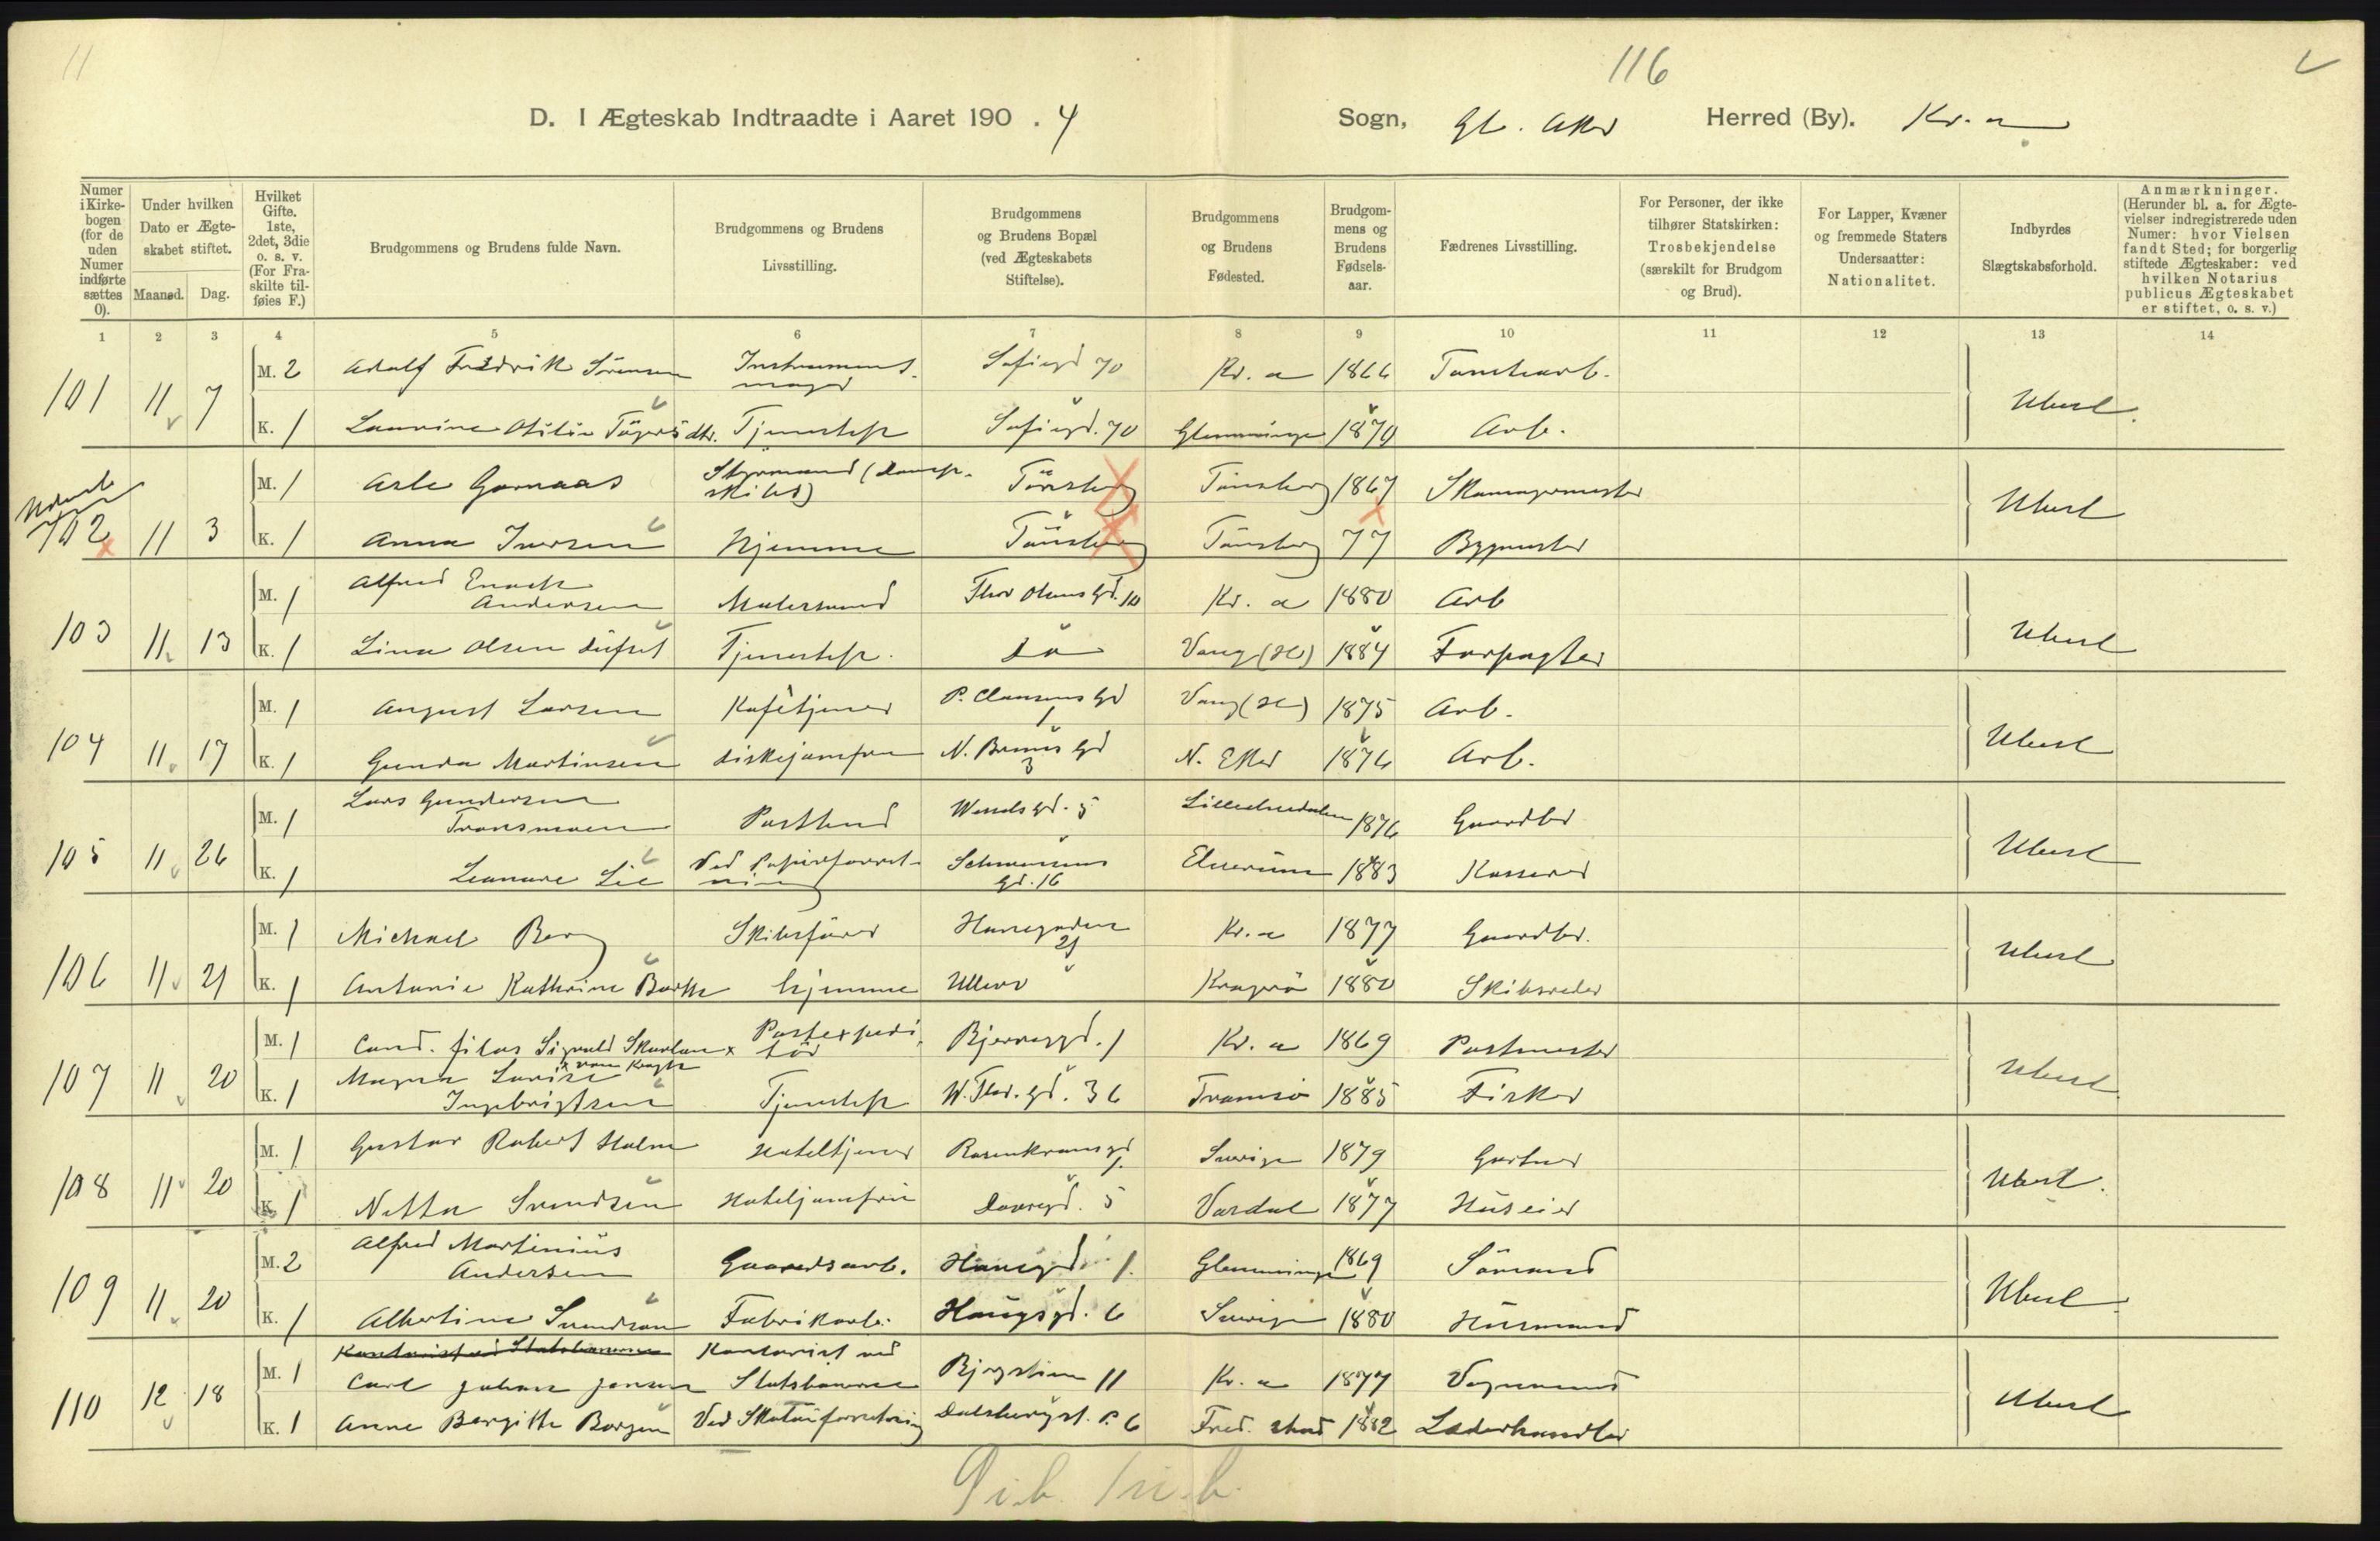 11
116
D. I Ægteskab Indtraadte i Aaret 190 . 4 Sogn, Gl. Aker Herred (By). Kr. a
Numer i Kirkebogen (for de uden Numer indførte sættes 0).
Under hvilken Dato er Ægteskabet stiftet.
Maaned. Dag.
Hvilket Gifte. 1ste, 2det, 3die o. s. v. (For Fraskilte tilføies F.)
Brudgommens og Brudens fulde Navn.
Brudgommens og Brudens Livsstilling.
Brudgommens og Brudens Bopæl (ved Ægteskabets Stiftelse).
Brudgommens og Brudens Fødested.
Brudgommens og Brudens Fødselsaar.
Fædrenes Livsstilling.
For Personer, der ikke tilhører Statskirken: Trosbekjendelse (særskilt for Brudgom og Brud).
For Lapper, Kvæner og fremmede Staters Undersaatter: Nationalitet.
Indbyrdes Slægtskabsforhold.
Anmærkninger. (Herunder bl. a. for Ægtevielser indregistrerede uden Numer: hvor Vielsen fandt Sted; for borgerlig stiftede Ægteskaber: ved hvilken Notarius publicus Ægteskabet er stiftet, o. s. v.)
1 2 3 4 5 6 7 8 9 10 11 12 13 14
101 11 7 M. 2 Adolf Fredrik Sörensen Instrumentmager Sofiegd 70 Kr. a 1866 Tomtearb.
K. 1 Laurine Otilie dtr. Tjenestep Sofiegd. 70 Glemminge 1870 Arb. Ubesl.
102 11 3 M. 1 Asle Gornaas Styrmand (Dampskibs) Tönsberg Tönsberg 1867 Skomagermester
K. 1 Anna Iversen Hjemme Tönsberg Tönsberg 77 Bygmester Ubesl
103 11 13 M. 1 Alfred Enock Andersen Malersvend Thor Olsens Gd. 10 Kr. a 1880 Arb
K. 1 Lina Olsen Tjenestep. do Vang (H) 1884 Forpagter Ubesl
104 11 17 M. 1 August Larsen Kafétjener P. Clausens Gd 1 Vang (H) 1875 Arb.
K. 1 Gunda Martinsen Diskejomfru N. Bruns Gd 3 N. Eker 1876 Arb. Ubesl
105 11 26 M. 1 Lars Gundersen Tronsmoen Postbud Wessels Gd. 5 Lilleelvedalen 1876 Gaardbr
K. 1 Leonore Lie Ved Papirforretning Schwensens Gd. 16 Elverum 1883 Kasserer Ubesl
106 11 21 M. 1 Michael Berg Skibsförer 21 Kr. a 1877 Gaardbr.
K. 1 Antonie Kathrine Barth hjemme Ullern Kragerö 1880 Skibsreder Ubesl
107 11 20 M. 1 Cand. filos Sigvald Skavlan x Postexpeditör Bjerregd. 1 Kr. a 1869 Postmester
x von Krogh
K. 1 Magna Lovise Ingebrigtsen Tjenestep W. Thr. Gd. 36 Tromsö 1885 Fisker Ubesl
108 11 20 M. 1 Gustav Robert Holm Hoteltjener Rosenkransgd 1. Sverige 1879 Gartner
K. 1 Netta Svendsen Hoteljomfru Dovregd. 5 Vardal 1877 Huseier Ubesl.
109 11 20 M. 2 Alfred Martinius Andersen Gaardsarb. 1. Glemminge 1869 Sömand
K. 1 Albertine Svendsen Fabrikarb. Haugsgd. 6 Sverige 1880 Husmand Ubesl
Kontorist ved Statsbanerne
110 12 18 M. 1 Carl Johan Jensen Kontorist ved Statsbanerne 11 Kr. a 1877 Vognmand
K. 1 Anne Bergitte Borgen Ved Skotöiforretning Dalsbergst. 6 Fred. stad 1882 Læderhandler Ubesl